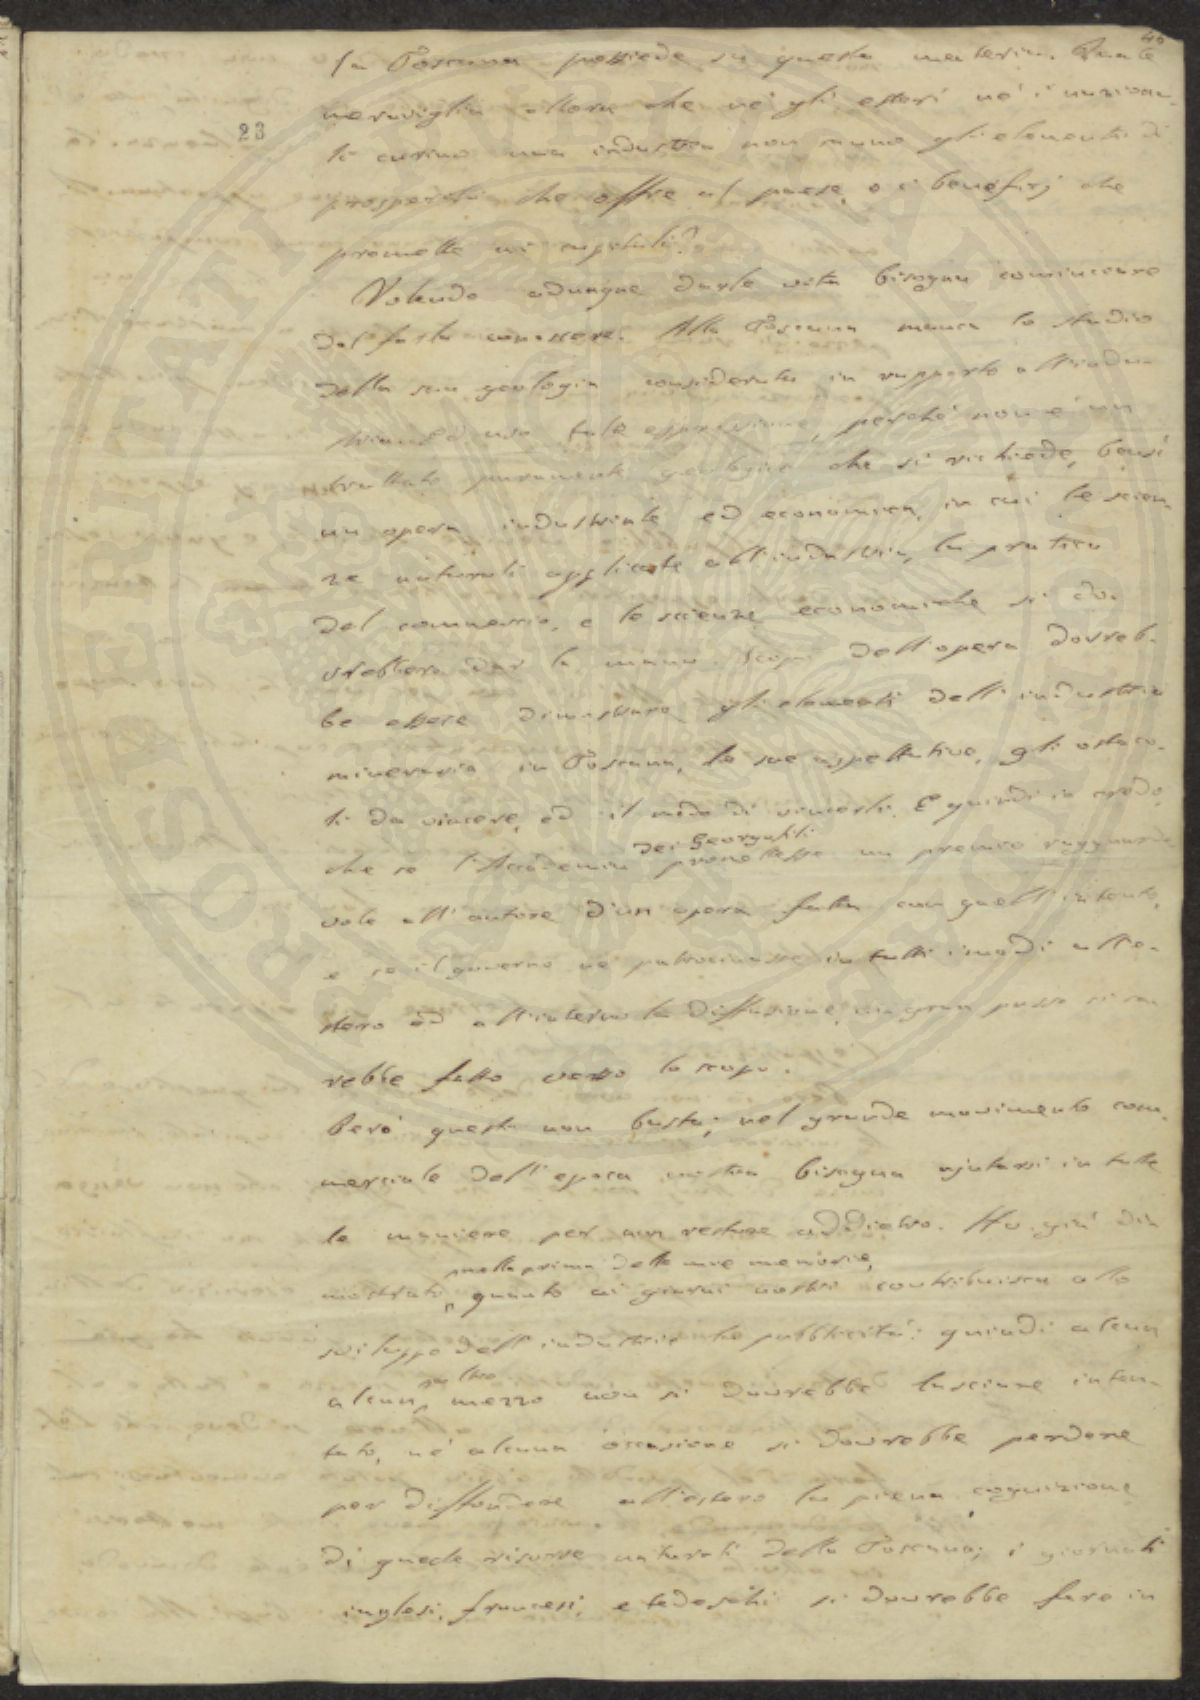 46
la Toscana possiede su questa materia. Quale
meraviglia allora che nè gli esteri nè i naziona-
23
li curino una industria non sanno gli elementi di
prosperità che offre al paese, o i benefizj che
promette ai capitali?
Volendo adunque darle vita bisogna cominciare
dal farla conoscere. Alla Toscana manca lo studio
della sua geologia considerata in rapporto all'indu-
stria ed uso tale espressione, perchè non è un
trattato puramente geologico che si richiede, bensì
un opera industriale ed economica, in cui le scien-
ze naturali applicate all'industria, la pratica
del commercio, e le scienze economiche si do-
vrebbero dar la mano. Scopo dell'opera dovreb-
be essere dimostrare gli elementi dell'industria
mineraria in Toscana, le sue aspettative, gli ostaco-
li da vincere, ed il modo di vincerli. E quindi io credo,
dei Georgofili
che se l'Accademia promettesse un premio ragguarde
vole all'autore d'un opera fatta con quell'intento,
e se il governo ne patrocinasse in tutti i modi all'e-
stero ed all'interno la diffusione, un gran passo si sa
rebbe fatto verso lo scopo.
Però questo non basta; nel grande movimento com-
merciale dell'epoca nostra bisogna ajutarsi in tutte
le maniere per non restare addietro. Ho già di
nella prima delle mie memorie,
mostrato, quanto ai giorni nostri contribuisca allo
sviluppo dell'industria la pubblicità: quindi alcun
alcun mezzo non si dovrebbe lasciare inten-
tato, nè alcuna occasione si dovrebbe perdere
per diffondere all'estero la piena cognizione
di quelle risorse naturali della Toscana; i giornali
inglesi, francesi, e tedeschi si dovrebbe fare in
PROSPERITATI PUBLICAE AUGENDAE